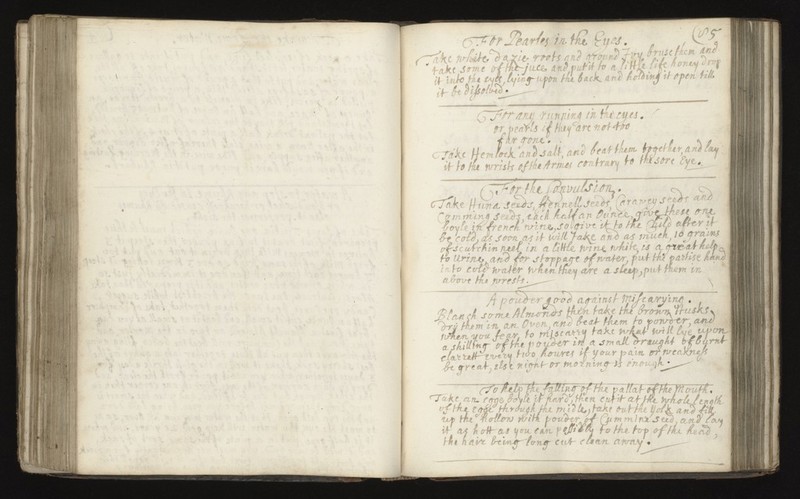 85
For Pearles in the Eyes.
Take white dazie roots and ground Ivy bruse them and
take some of the juce and put it to a little life honey drop
it into the eyes lying upon the back and holding it open till
it be dissolved.
For any running in the eyes.
or pearls if they are not too
far gone.
Take Hemlock and salt, and beat them together, and lay
it to the wrists of the Armes contrary to the sore Eye.
For the Convulsion,
Take seeds, Fennell seeds, seeds and
Cumming seeds, each half an Ounce, give these one
boyle in french wine, so give it to the Child after it
be cold, as soon as it will take and as much, 10 grains
of in a little wine white, is a great help
to Urine, and for stoppage of water, put the parties hand
into cold water when they are a sleep, put them in
above the wrests.
A pouder good against miscarying.
Blanch some Almonds then take the brown Husks
dry them in an Oven, and beat them to powder, and
when you fear to miscarry take what will lye upon
a shilling of the powder in a small draught of burnt
clarrett every two houres if your pain or weakness
be great, else night or morning is enough.
To help the falling of the pallat of the Mouth.
Take an egg boyle it hard, then cut it at the whole length
of the egge through the midle, take out the Yolk and fill
up the hollow with pouder of Cummine seed, and lay
it as hott as you can to the top of the head,
the haire being long cut clean away.